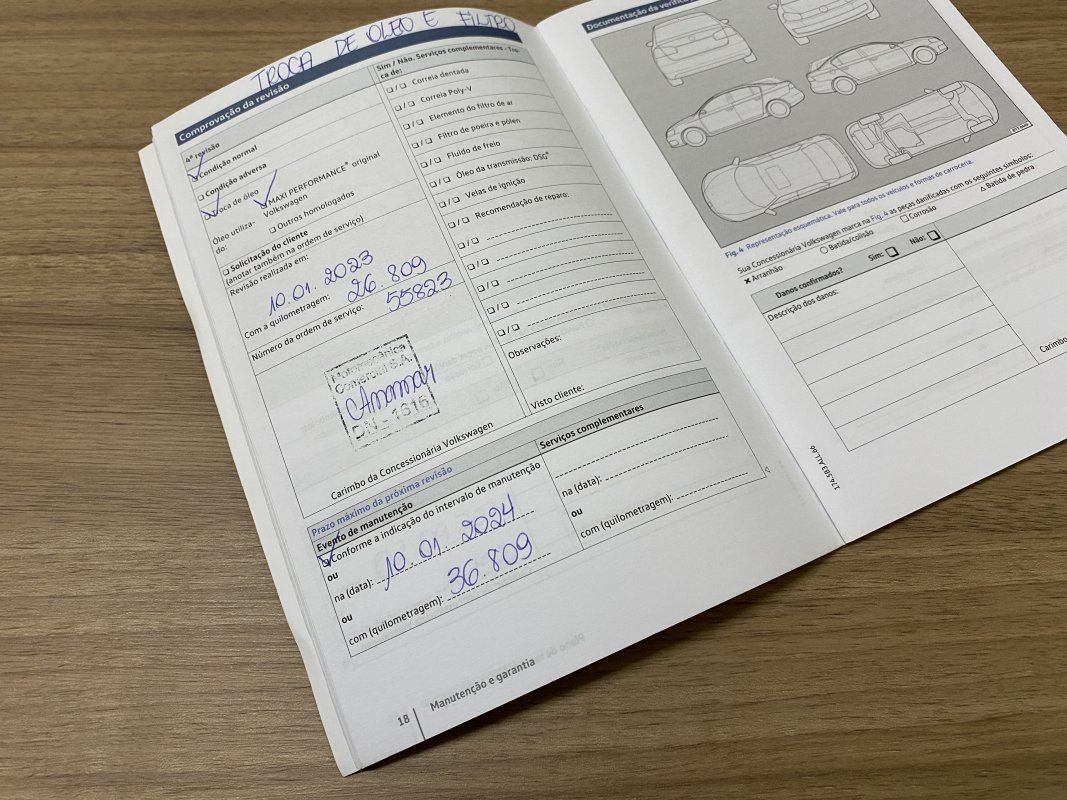 TROCA DE OLEO E FILTRO
Comprovação da revisão
4ª revisão
☑ Condição normal
❑ Condição adversa
☑ Troca de óleo
Óleo utiliza-
do:
☑ MAXI PERFORMANCE® original
Volkswagen
❑ Outros homologados
❑ Solicitação do cliente
(anotar também na ordem de serviço)
Revisão realizada em:
10.01.2023
Com a quilometragem: 26.809
Número da ordem de serviço: 55823
Motomecânica
Comercial S.A.
DN - 1616
Carimbo da Concessionária Volkswagen
Sim / Não. Serviços complementares - Tro-
ca de:
❑ / ❑ Correia dentada
❑ / ❑ Correia Poly-V
❑ / ❑ Elemento do filtro de ar
❑ / ❑ Filtro de poeira e pólen
❑ / ❑ Fluido de freio
❑ / ❑ Óleo da transmissão: DSG®
❑ / ❑ Velas de ignição
❑ / ❑ Recomendação de reparo:
❑ / ❑
❑ / ❑
❑ / ❑
❑ / ❑
❑ / ❑
Observações:
Visto cliente:
Prazo máximo da próxima revisão
Evento de manutenção
☑ Conforme a indicação do intervalo de manutenção
ou
na (data): 10.01.2024
ou
com (quilometragem): 36.809
Serviços complementares
na (data):
ou
com (quilometragem):
18 | Manutenção e garantia
Documentação da
Fig. 4 Representação esquemática. Vale para todos os veículos e formas de carroceria.
Sua Concessionária Volkswagen marca na Fig. 4 as peças danificadas com os seguintes símbolos:
✖ Arranhão ○ Batida/colisão ❑ Corrosão △ Batida de pedra
Danos confirmados? Sim: ❑ Não: ❑
Descrição dos danos:
174.5B3.ALL.66